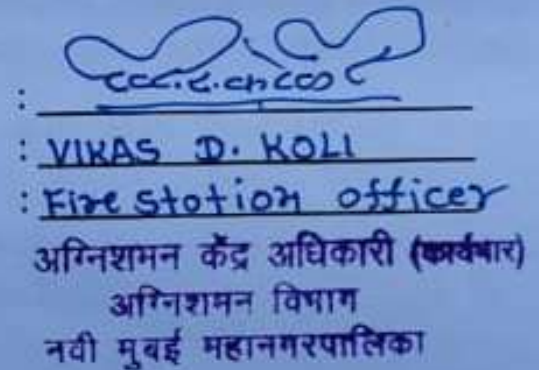 :
: VIKAS D. KOLI
: Fire Station officer
अग्निशमन केंद्र अधिकारी (कार्यभार)
अग्निशमन विभाग
नवी मुंबई महानगरपालिका